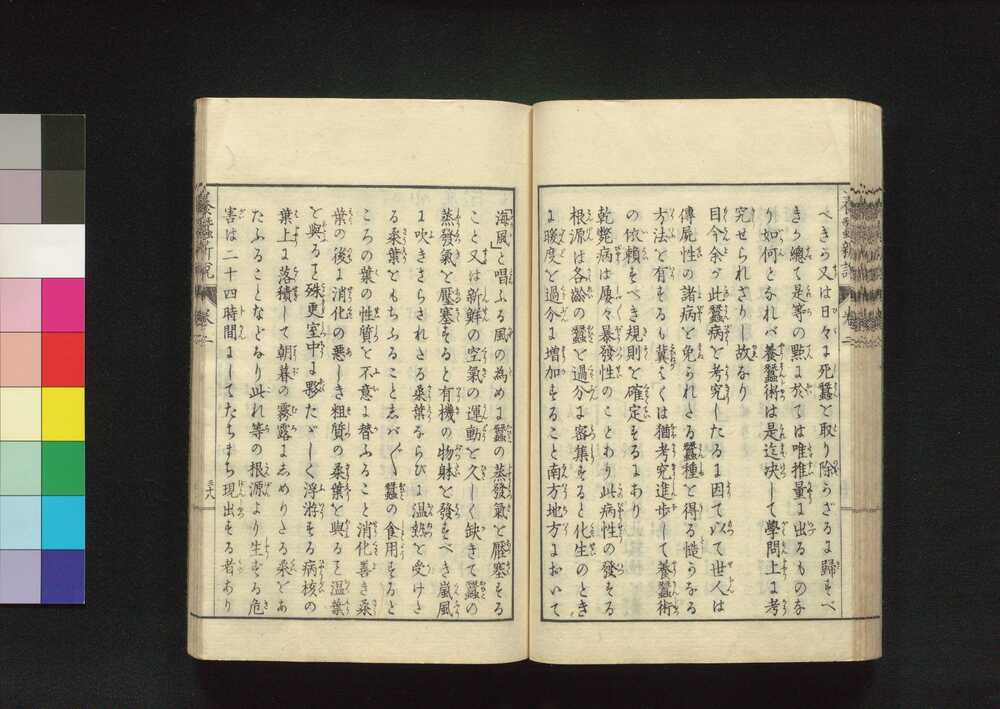 べきか又は日々に死蠶を取り除かざるに歸すべ
きか總て是等の點に於ては唯推量に出るものな
り如何となれバ養蠶術は是迄决して學問上に考
究せられざりし故なり
目今余が此蠶病を考究したるに因て以て世人は
傳屍性の諸病を免られたる蠶種を得る慥かなる
方法を有するも冀くは猶考究進歩して養蠶術
の依頼すべき規則を確定するにあり
乾斃病は屢々暴發性のことあり此病性の發する
根源は各齡の蠶を過分に密集すると化生のとき
に暖度を過分に増加すること南方地方において
「海風」と唱ふる風の為めに蠶の蒸發氣を壓塞する
こと又は新鮮の空氣の運動を久しく缺きて蠶の
蒸發氣を壓塞すると有機の物躰を發すべき嵐風
に吹きさらされたる桑葉ならびに温熱を受けた
る桑葉をもちふることしバ〳〵蠶の食用すると
ころの葉の性質を不意に替ふること消化善き桑
葉の後に消化の悪しき粗質の桑葉を與ると温葉
を與ると殊更室中に夥たゞしく浮游する病核の
葉上に落積して朝暮の霧露にしめりたる桑をあ
たふることなどなり此れ等の根源より生ずる危
害は二十四時間にしてたちまち現出する者あり
養蠶新説 卷二
三十八